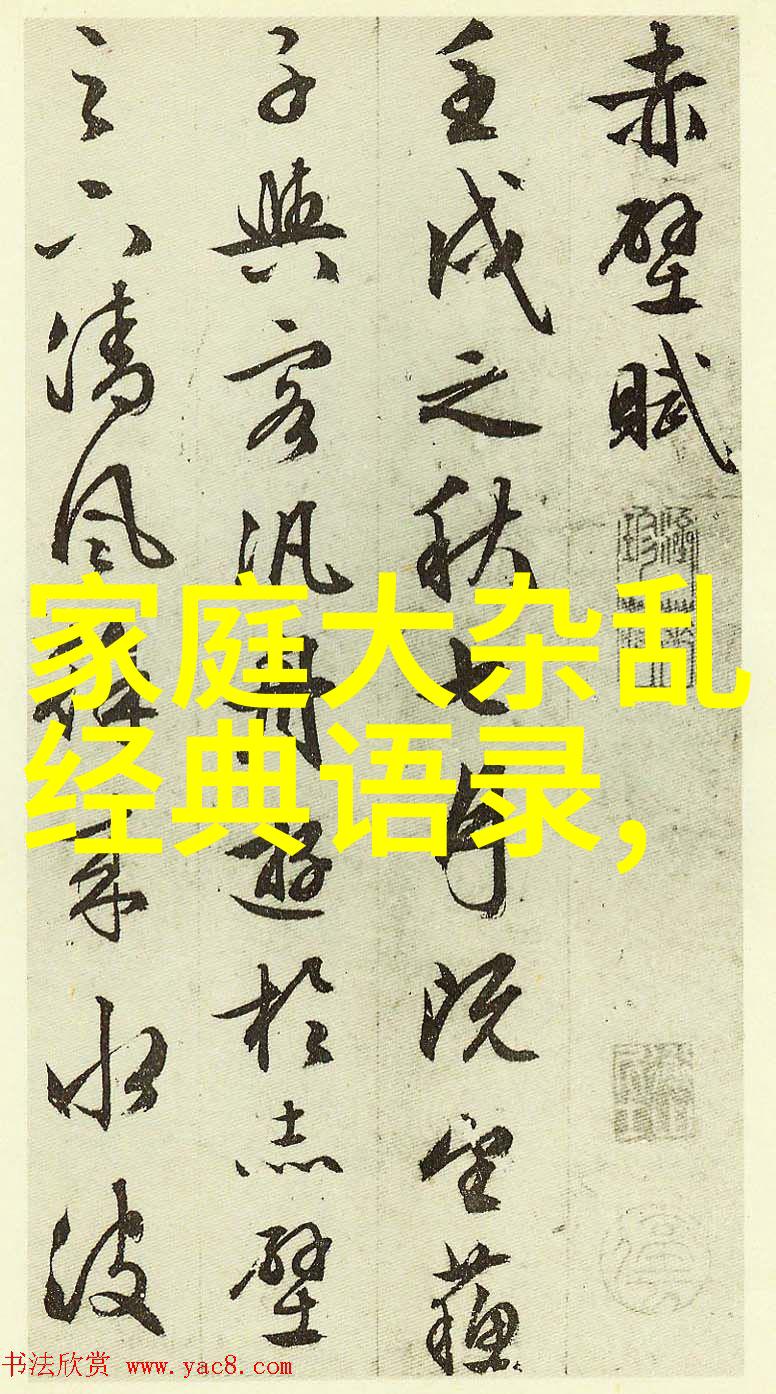 赤壁賦
壬戌之秋七月既望蘓
子與客汎舟遊於赤壁
之下清風徐來水波
家庭大杂乱
经典语录,
书法欣赏 www.yac8.com